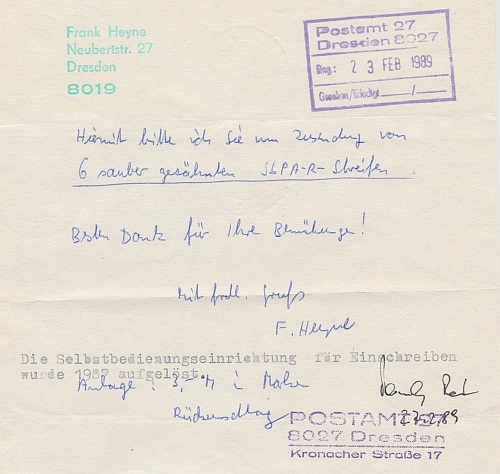 Frank Heyne
Neubertstr. 27
Dresden
8019
Postamt 27
Dresden 8027
Eing.: 23 FEB 1989
Gesehen/Erledigt / 
Hiermit bitte ich Sie um Zusendung von
6 sauber gezähnten SbPA-R-Streifen.
Besten Dank für Ihre Bemühungen!
Mit frdl. Gruß
F. Heyne
Die Selbstbedienungseinrichtung für Einschreiben
wurde 1987 aufgelöst.
Anlage: 3,- M in Marken
Rückumschlag
27.2.89
POSTAMT 27
8027 Dresden
Kronacher Straße 17